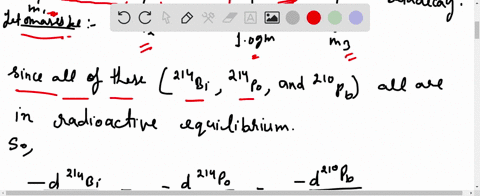 m₁
Let masses be:-
1.0gm m₃
since all of these (²¹⁴Bi, ²¹⁴Po, and ²¹⁰Pb) all are
in radioactive equilibrium.
So,
-d ²¹⁴Bi - d ²¹⁴Po -d²¹⁰Pb